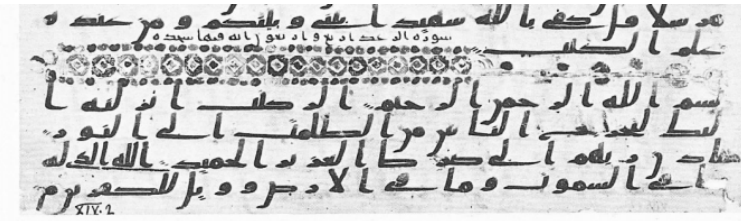 مرسلا قل كفى بالله شهيدا بيني وبينكم ومن عنده
سورة
علم الكتب
بسم الله الرحمن الرحيم الر كتب انزلنه ا
ليك لتخرج الناس من الظلمت الى النور
باذن ربهم الى صرط العزيز الحميد الله الذي له
ما في السموت وما في الارض وويل للكفرين م
XIV.2